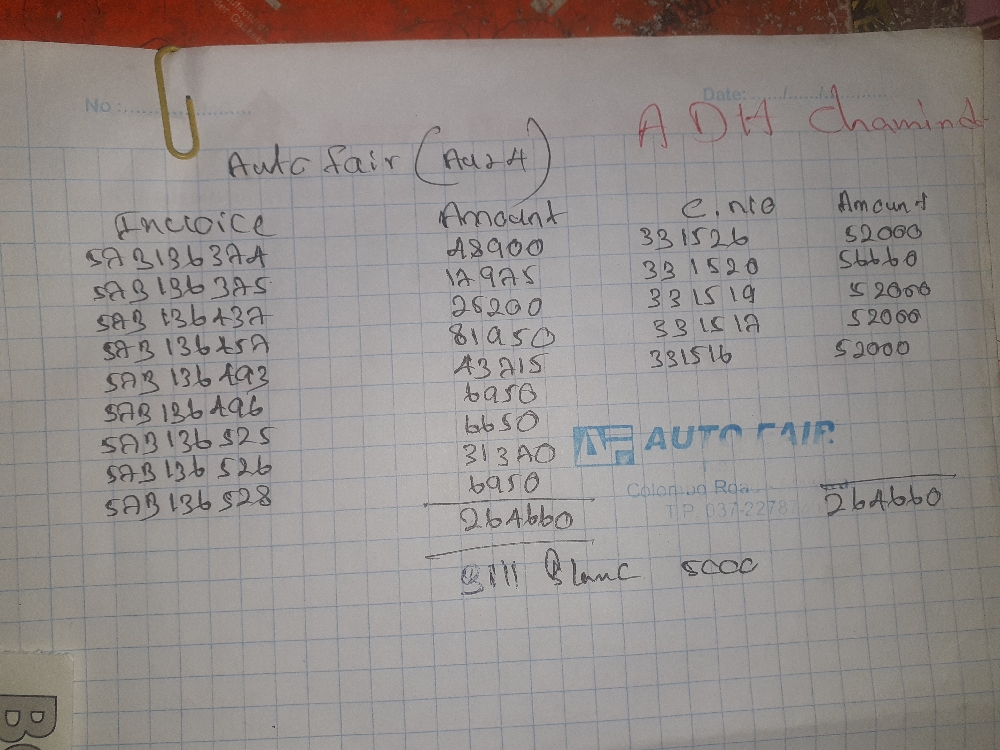 No :....................
Date: ...../....../.............
ADH Chamind
Auto fair (Au24)
Invoice Amount C.no Amount
SAB136374 48900 331526 52000
SAB136375 17975 331520 56660
SAB136437 25200 331519 52000
SAB136457 81950 331517 52000
SAB136493 43715 331516 52000
SAB136496 6950
SAB136525 6650
SAB136526 31370
SAB136528 6950
AF AUTO FAIR
Colombo Roa
T.P. 037-2278
264660 264660
Bill Blanc 5000